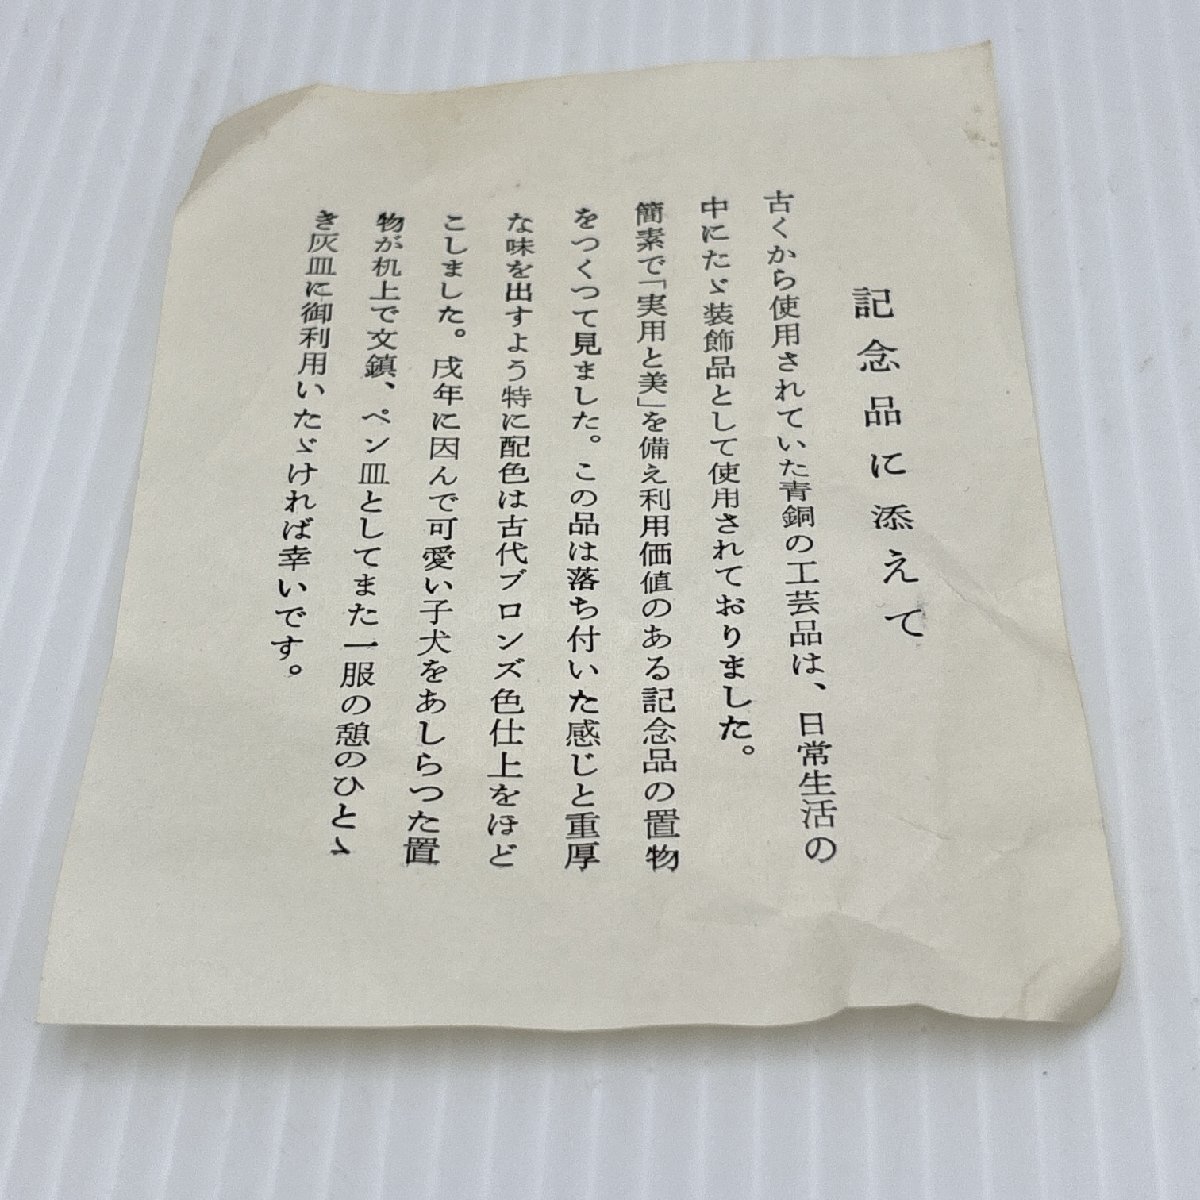 記念品に添えて
古くから使用されていた青銅の工芸品は、日常生活の
中にたゞ装飾品として使用されておりました。
簡素で「実用と美」を備え利用価値のある記念品の置物
をつくつて見ました。この品は落ち付いた感じと重厚
な味を出すよう特に配色は古代ブロンズ色仕上をほど
こしました。戌年に因んで可愛い子犬をあしらつた置
物が机上で文鎮、ペン皿としてまた一服の憩のひとゝ
き灰皿に御利用いたゞければ幸いです。